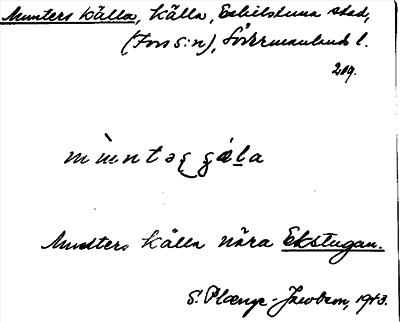 Munters källa, Källa, Eskilstuna stad,
(Fors s:n), Södermanlands l.
209.
mùntəʂ ɕäla
Munters källa nära Ekstugan.
S. Plænge-Jacobson, 1943.